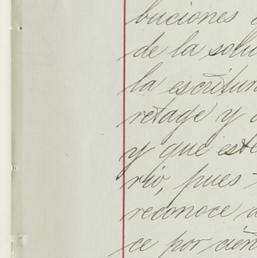 buciones
de la solu
la escritura
retage y a
y que este
rio, pues
reconoce a
ce por cien